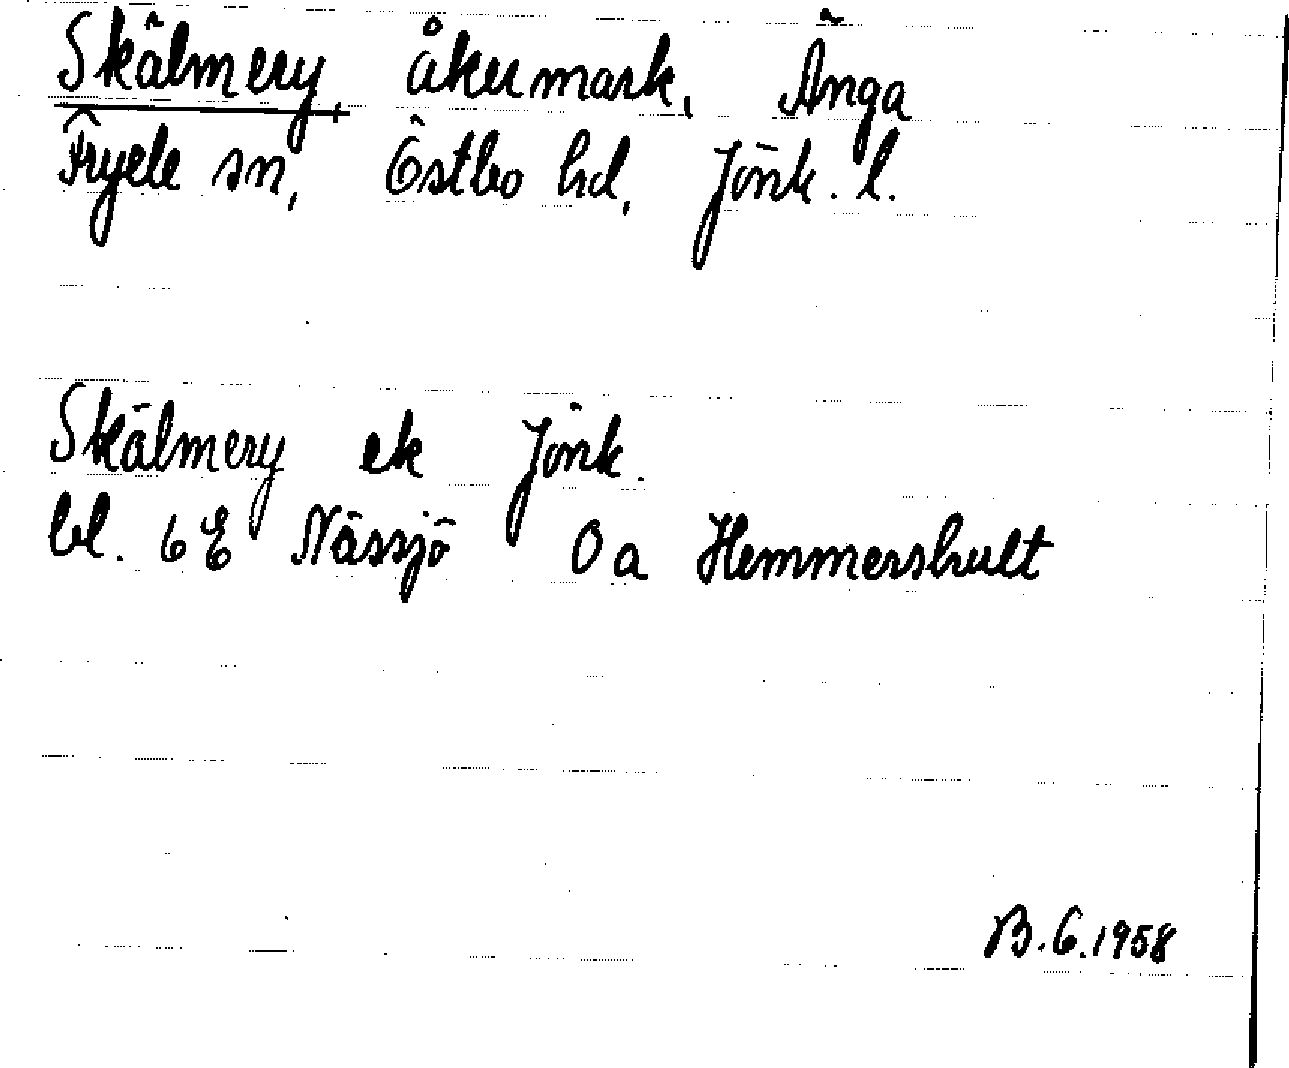 Skälmery, åkermark, Änga
Fryele sn, Östbo hd, Jönk. l.
Skälmery ek Jönk.
bl. 6E Nässjö 0a Hemmershult
B.G.1958